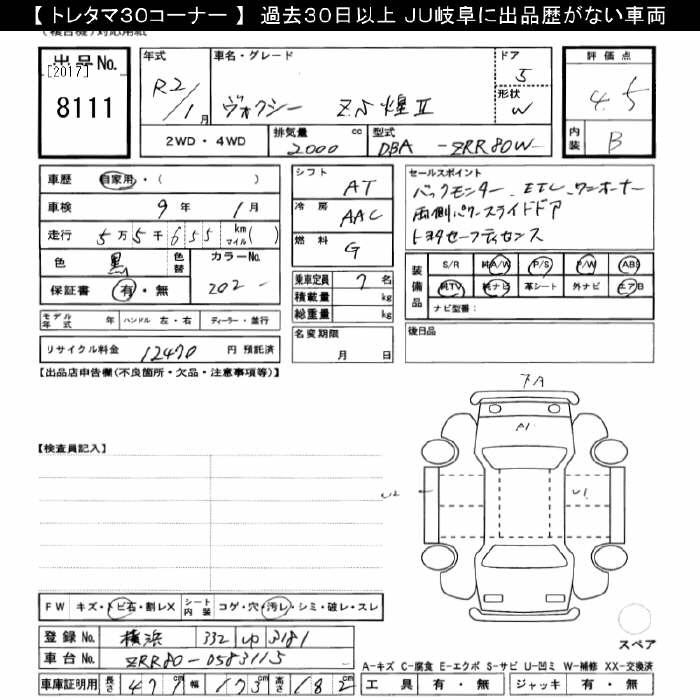 【トレタマ30コーナー】 過去30日以上 JU岐阜に出品歴がない車両
出品No.
[2017]
8111
年式
R2/1月
車名・グレード
ヴォクシー ZS煌Ⅱ
ドア
5
形状
W
評価点
4.5
内装
B
2WD・4WD
排気量 cc
2000
型式
DBA -ZRR80W-
車歴 自家用・( )
車検 9年 1月
走行 5万5千655 km マイル( )
色 黒 色替
カラーNo.
202 -
保証書 有・無
シフト AT
冷房 AAC
燃料 G
乗車定員 7名
積載量 kg
総重量 kg
セールスポイント
バックモンター、ETC、ワンオーナー
両側パワースライドドア
トヨタセーフティセンス
装備品
S/R 純A/W P/S P/W ABS
純TV 純ナビ 革シート 外ナビ エアB
ナビ型番:
モデル年式 年 ハンドル 左・右 ディーラー・並行
名変期限
月 日
後日品
リサイクル料金 12470 円 預託済
【出品店申告欄(不良箇所・欠品・注意事項等)】
【検査員記入】
フA
A1
U2
U1
FW キズ・トビ石・割レX シート内装 コゲ・穴・汚レ・シミ・破レ・スレ
登録No. 横浜 332 ゆ 3181
車台No. ZRR80-0583115
車庫証明用 長さ 479cm 幅 173cm 高さ 182cm
スペア
A-キズ C-腐食 E-エクボ S-サビ U-凹ミ W-補修 XX-交換済
工具 有・無 ジャッキ 有・無